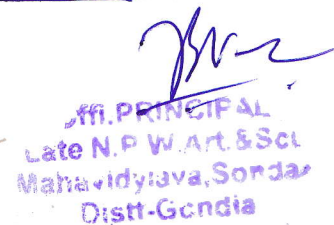 Offi. PRINCIPAL
Late N.P.W. Art. & Sci.
Mahavidylaya, Sondar
Distt-Gondia